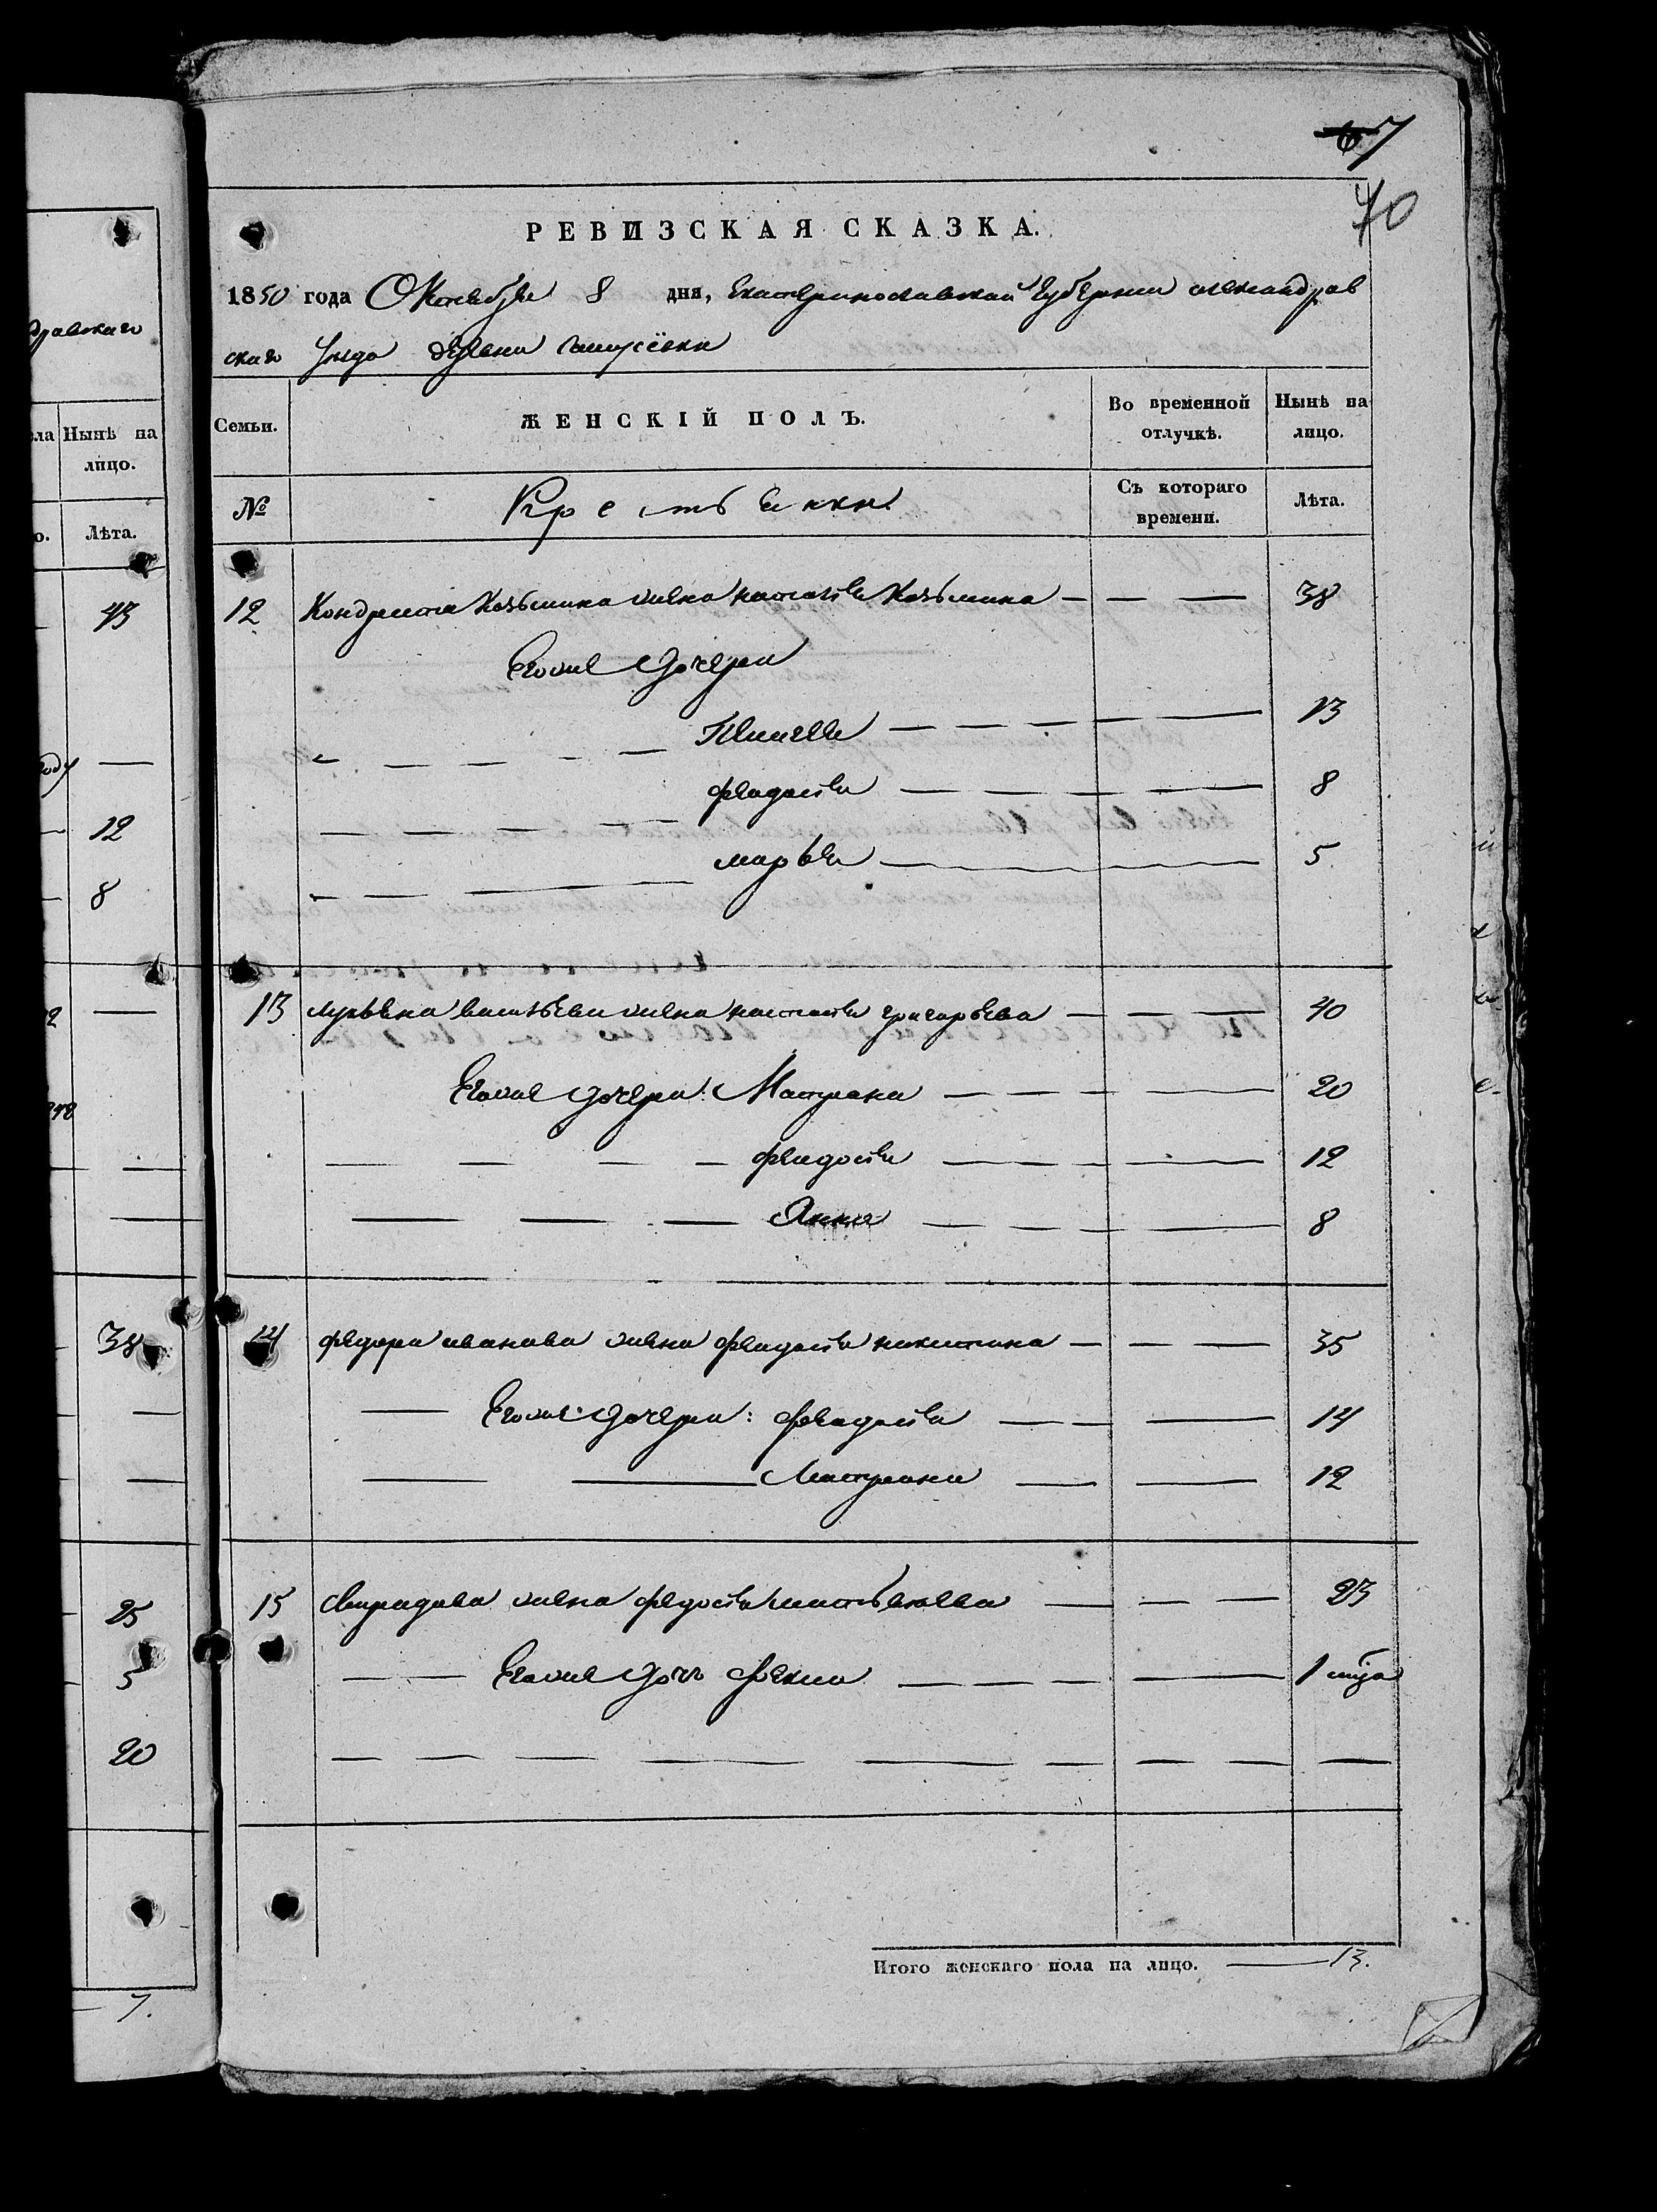 67
70
РЕВИЗСКАЯ СКАЗКА.
1850 года Октября 8 дня, Екатеринославской Губернии александров
скаго Уезда деревни
Семьи. ЖЕНСКІЙ ПОЛЪ. Во временной отлучкѣ. Нынѣ на лицо.
№ Крестьянки Съ котораго времени. Лѣта.
12 Кондрата Козьмина жена наталья Козьмина 38
Егоже дочери
13
феадосья 8
марья 5
13 лукьяна васильева жена настасья григорьева 40
Егоже дочери: Матрена 20
феадосья 12
Анна 8
14 федора иванова жена феадосья никитина 35
Егоже дочери: феадосья 14
Матрена 12
15 Свиридона жена федосья матвеева 23
Егоже дочь 1 мца
Итого женскаго пола на лицо. 13.
дравскаго
ла Нынѣ на
лицо.
о. Лѣта.
43
году
12
8
38
25
5
20
7.